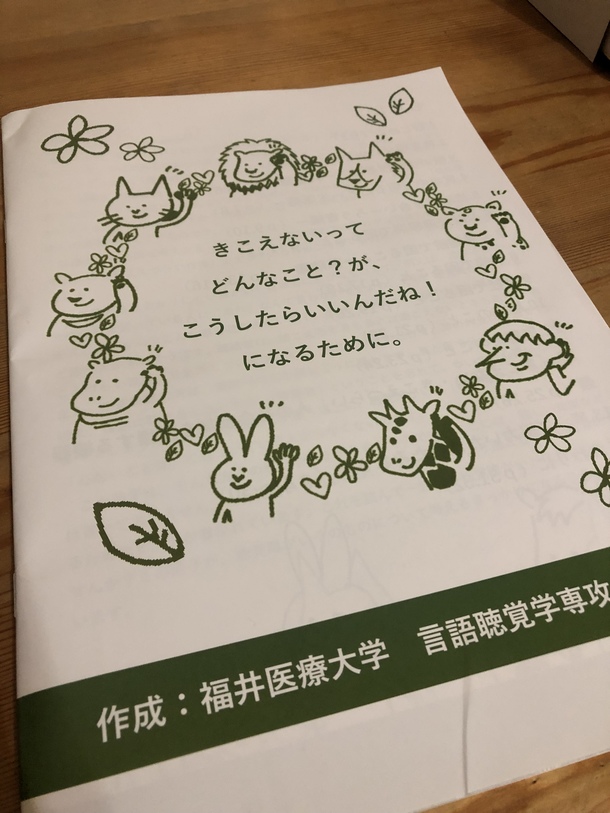 きこえないって
どんなこと？が、
こうしたらいいんだね！
になるために。
作成：福井医療大学　言語聴覚学専攻